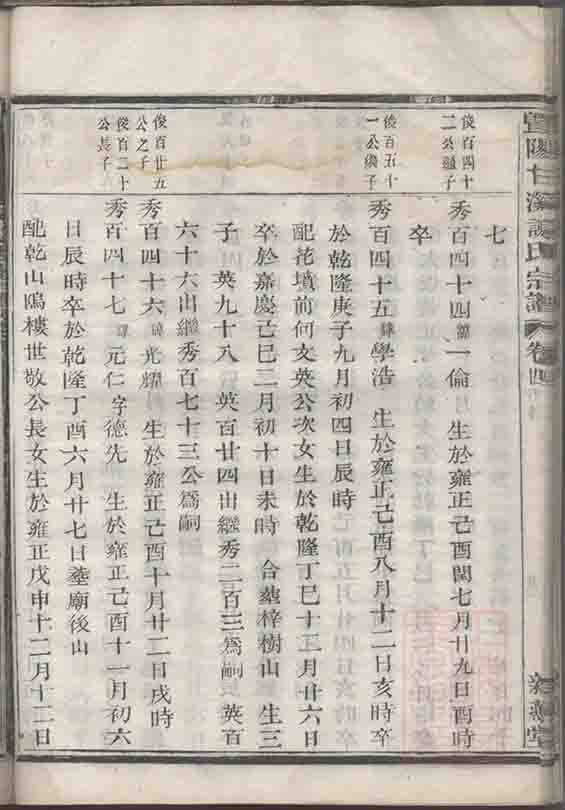 暨陽
氏宗譜
卷四
七
俊百四十
二公繼子
秀百四十四諱一倫 生於雍正己酉閏七月廿九日酉時
卒
俊百五十
一公幾子
秀百四十五諱學浩 生於雍正己酉八月十二日亥時卒
於乾隆庚子九月初四日辰時
配花墳前何文英公次女生於乾隆丁巳十三月廿六日
卒於嘉慶己巳二月初十日未時 合塟梓樹山 生三
子 英九十八 英百廿四出繼秀二百三爲嗣 英百
六十六出繼秀百七十三公爲嗣
俊百廿五
公之子
秀百四十六諱光耀 生於雍正己酉十月廿二日戌時
俊百二十
公長子
秀百四十七諱元仁字德先 生於雍正己酉十一月初六
日辰時卒於乾隆丁酉六月廿七日塟廟後山
配乾山鴎樓世敬公長女生於雍正戊申十二月十二日
堂